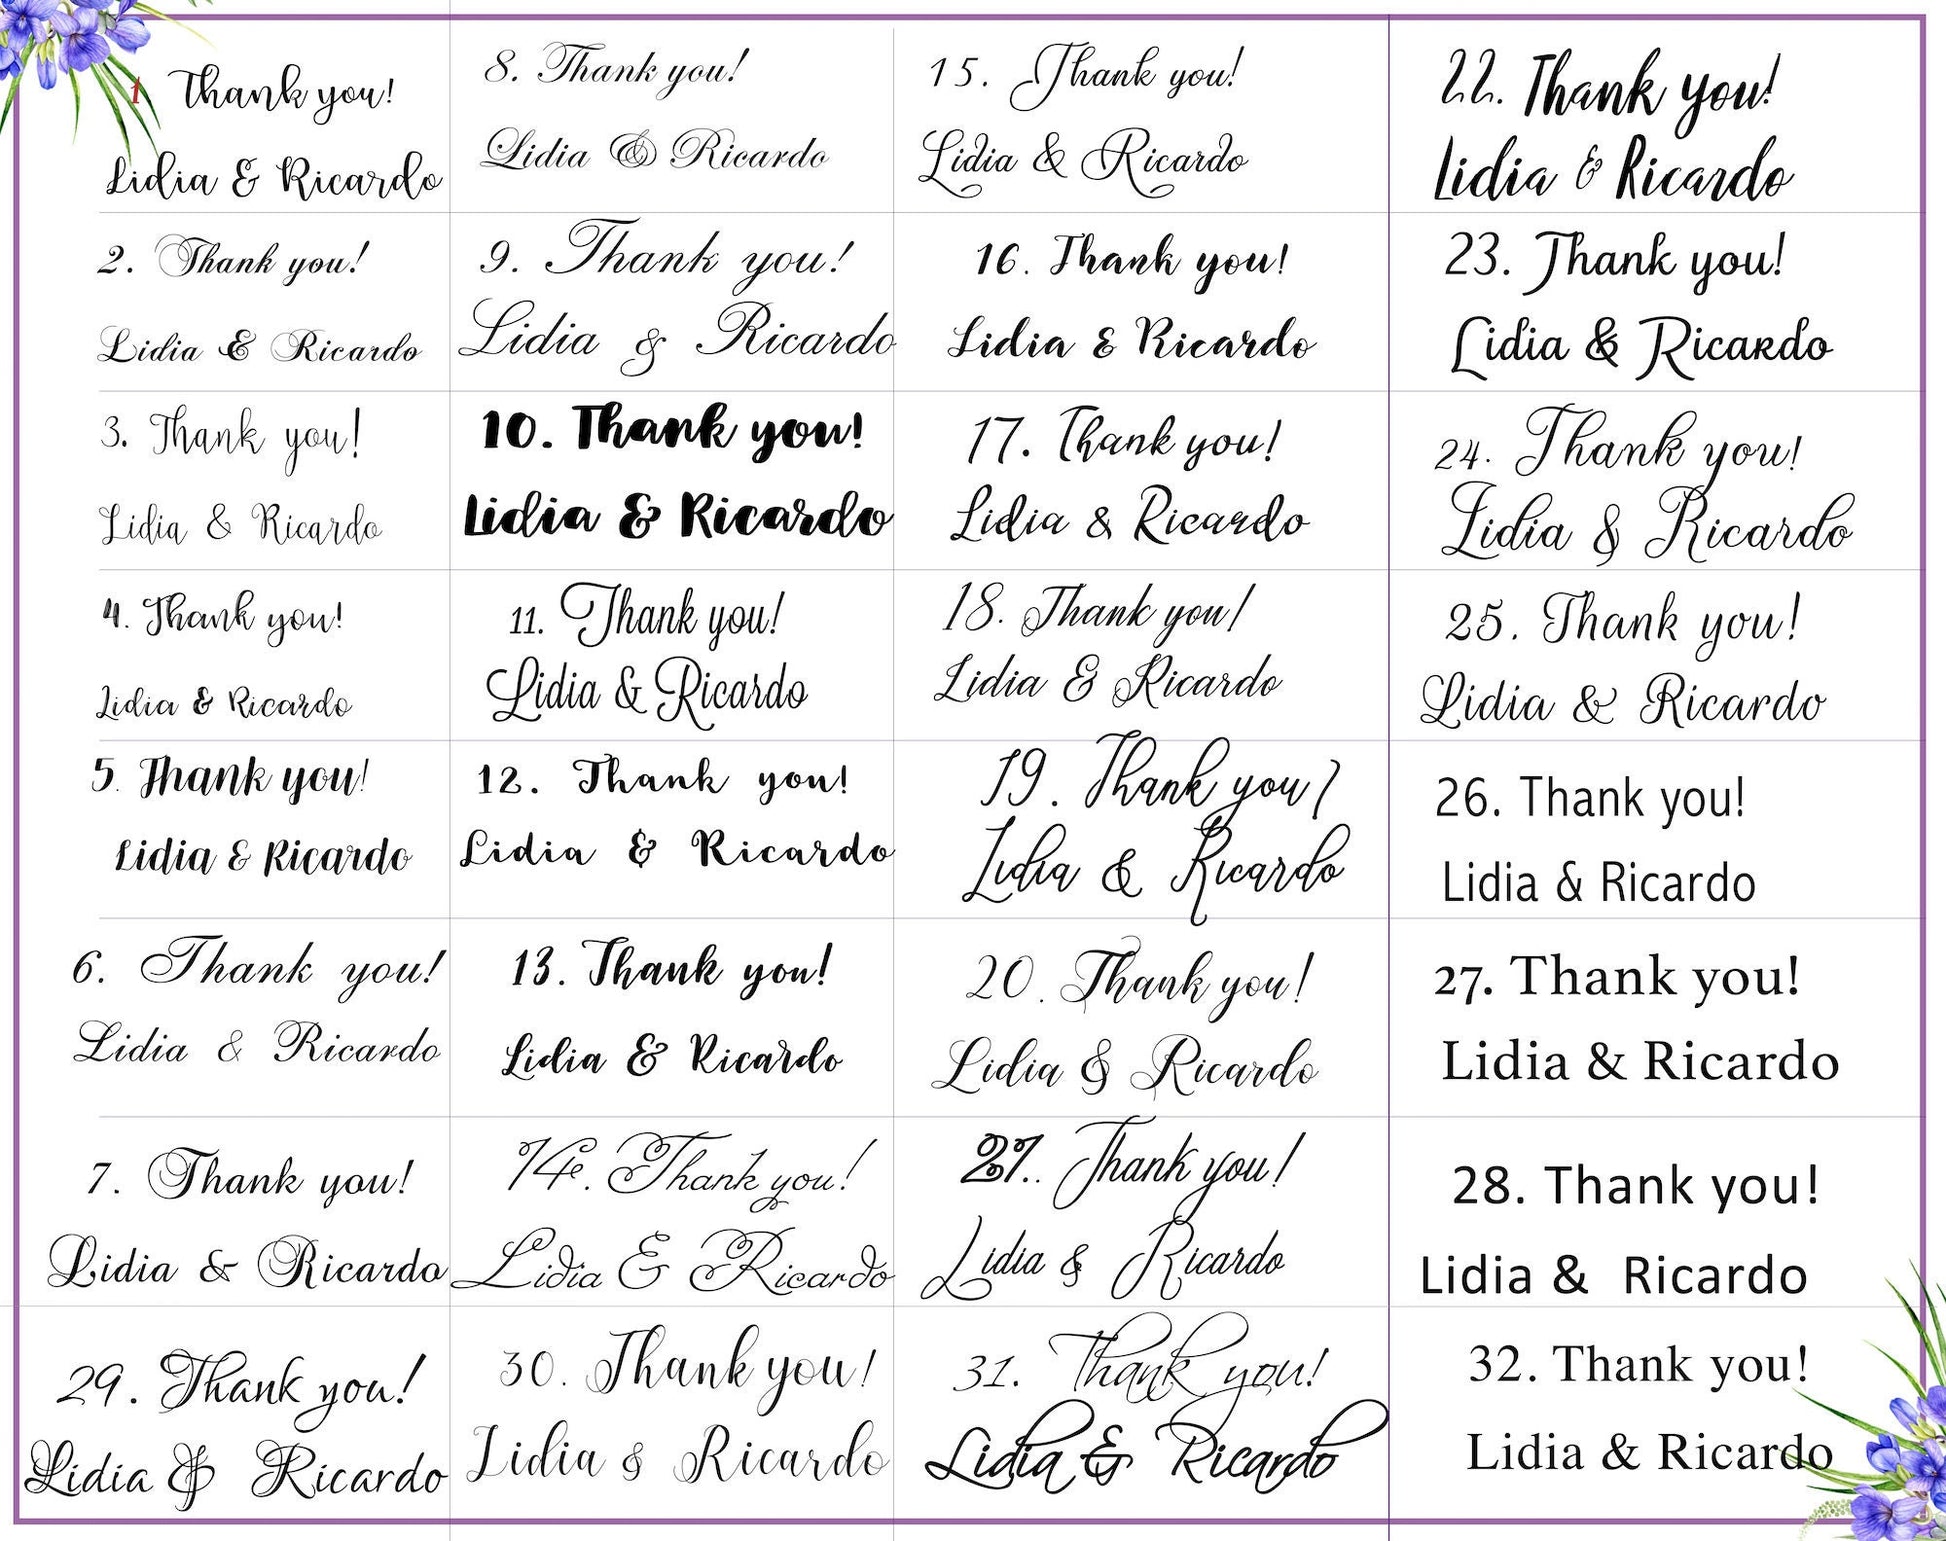 1 Thank you!
Lidia & Ricardo
2. Thank you!
Lidia & Ricardo
3. Thank you!
Lidia & Ricardo
4. Thank you!
Lidia & Ricardo
5. Thank you!
Lidia & Ricardo
6. Thank you!
Lidia & Ricardo
7. Thank you!
Lidia & Ricardo
8. Thank you!
Lidia & Ricardo
9. Thank you!
Lidia & Ricardo
10. Thank you!
Lidia & Ricardo
11. Thank you!
Lidia & Ricardo
12. Thank you!
Lidia & Ricardo
13. Thank you!
Lidia & Ricardo
14. Thank you!
Lidia & Ricardo
15. Thank you!
Lidia & Ricardo
16. Thank you!
Lidia & Ricardo
17. Thank you!
Lidia & Ricardo
18. Thank you!
Lidia & Ricardo
19. Thank you!
Lidia & Ricardo
20. Thank you!
Lidia & Ricardo
21.. Thank you!
Lidia & Ricardo
22. Thank you!
Lidia & Ricardo
23. Thank you!
Lidia & Ricardo
24. Thank you!
Lidia & Ricardo
25. Thank you!
Lidia & Ricardo
26. Thank you!
Lidia & Ricardo
27. Thank you!
Lidia & Ricardo
28. Thank you!
Lidia & Ricardo
29. Thank you!
Lidia & Ricardo
30. Thank you!
Lidia & Ricardo
31. Thank you!
Lidia & Ricardo
32. Thank you!
Lidia & Ricardo